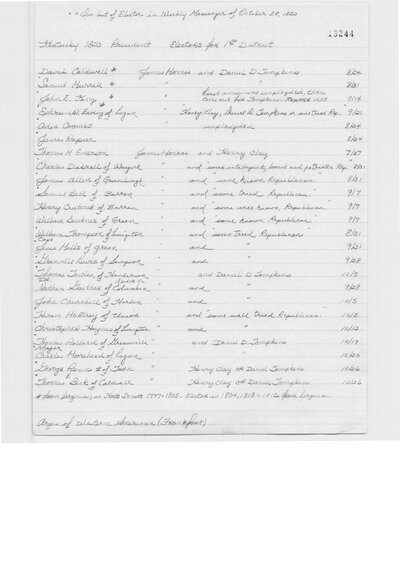 * = On list of Electors in Weekly Messenger of October 28, 1820
13244
Kentucky 1820 President Electors for 1st District
David Caldwell * James Monroe and Daniel D. Tompkins 8/24
Samuel Murrell * " " 8/31
John E. King * " first announced unpledged, then came out for Tompkins. 9/14
Ephraim Ewing of Logan " Henry Clay, Daniel D. Tompkins or some tried Rep. 9/21
Aden Combs " unpledged 8/24
James " 8/24
Thomas H. Emerson James Monroe and Henry Clay 9/21
Charles of Wayne " and "some intelligent, honest and patriotic Rep.
James Allen of Greensburgh " and "some known Republican." 8/31
Samuel Bell of Barren " and "some tried Republican" 9/7
Henry Crutcher of Barren " and "some well known Republican. 9/7
William Buckner of Green " and "some known Republican" 9/7
William Thompson of Livingston " and "some tried Republican" 8/31
Capt.
Jesse Hills of Green " and " 9/21
Granville of Simpson " and " 9/28
Thomas of Henderson " and Daniel D. Tompkins 10/5
Adair Co.
Nathan Gaither of Columbia " and " 9/28
John Churchill of Hardin " and " 10/5
Hiram McElroy of Union " and "some well tried Republican. 10/5
Christopher Haynes of Livingston " and " 10/12
Thomas Pollard of Greenville " and Daniel D. Tompkins 10/19
Major
Charles Morehead of Logan " " 10/26
George of Todd " Henry Clay or Daniel Tompkins 10/26
Thomas of Caldwell " Henry Clay or Daniel Tompkins 10/26
# from Virginia, in State Senate 1797-1805. Elector in 1804, 1808 + 1812 from Virginia.
Argus of Western American (Frankfort)